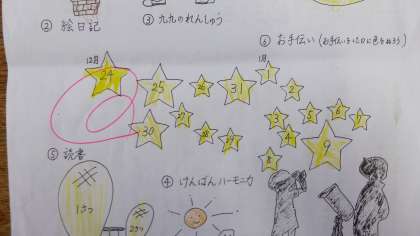 ② 絵日記
③ 九九のれんしゅう
⑥ お手伝い(お手伝いをした日に色をぬろう)
12月
1月
24
25
26
31
1
2
30
27
28
29
3
5
6
7
4
9
8
⑤ 読書
④ けんばんハーモニカ
1さつ
2さつ